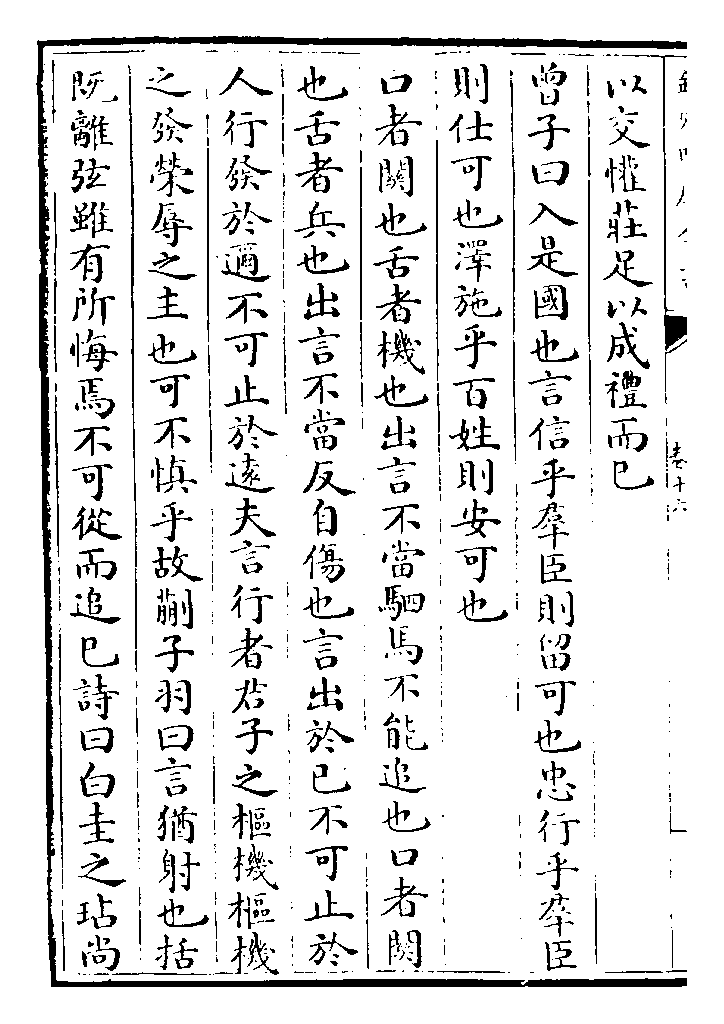 卷十六
以交懽莊足以成禮而已
曾子曰入是國也言信乎羣臣則留可也忠行乎羣臣
則仕可也澤施乎百姓則安可也
口者關也舌者機也出言不當駟馬不能追也口者關
也舌者兵也出言不當反自傷也言出於已不可止於
人行發於邇不可止於逺夫言行者君子之樞機樞機
之發榮辱之主也可不慎乎故蒯子羽曰言猶射也括
既離弦雖有所悔焉不可從而追已詩曰白圭之玷尚